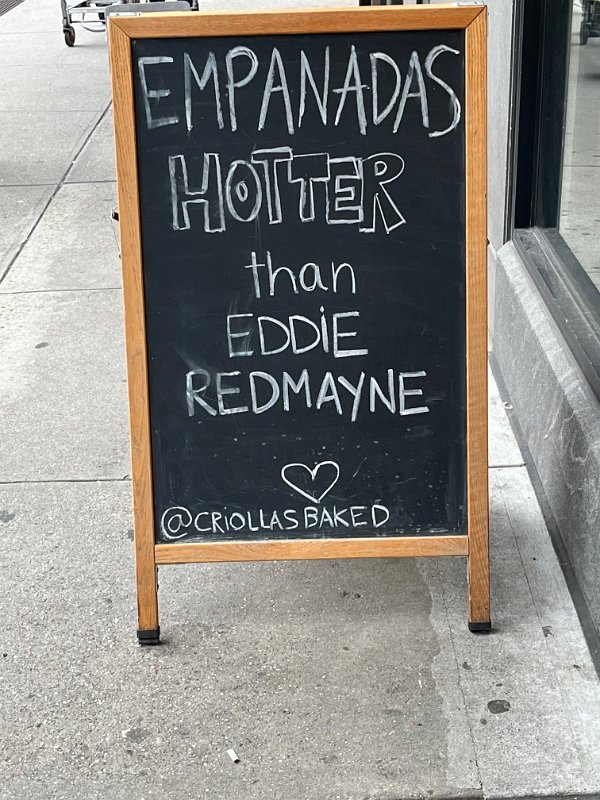 EMPANADAS
HOTTER
than
EDDiE
REDMAYNE
@CRiOLLASBAKED